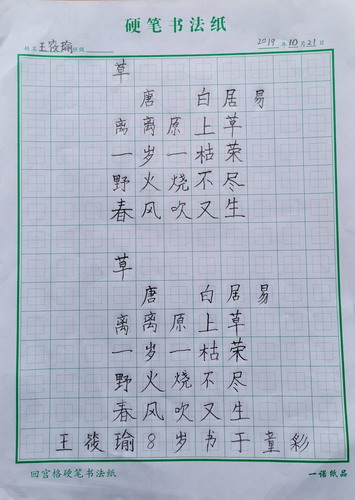 硬笔书法纸
姓名王筱瑜班级 2019年10月21日
草
唐 白居易
离离原上草
一岁一枯荣
野火烧不尽
春风吹又生
草
唐 白居易
离离原上草
一岁一枯荣
野火烧不尽
春风吹又生
王筱瑜8岁书于童彩
回宫格硬笔书法纸 一诺纸品